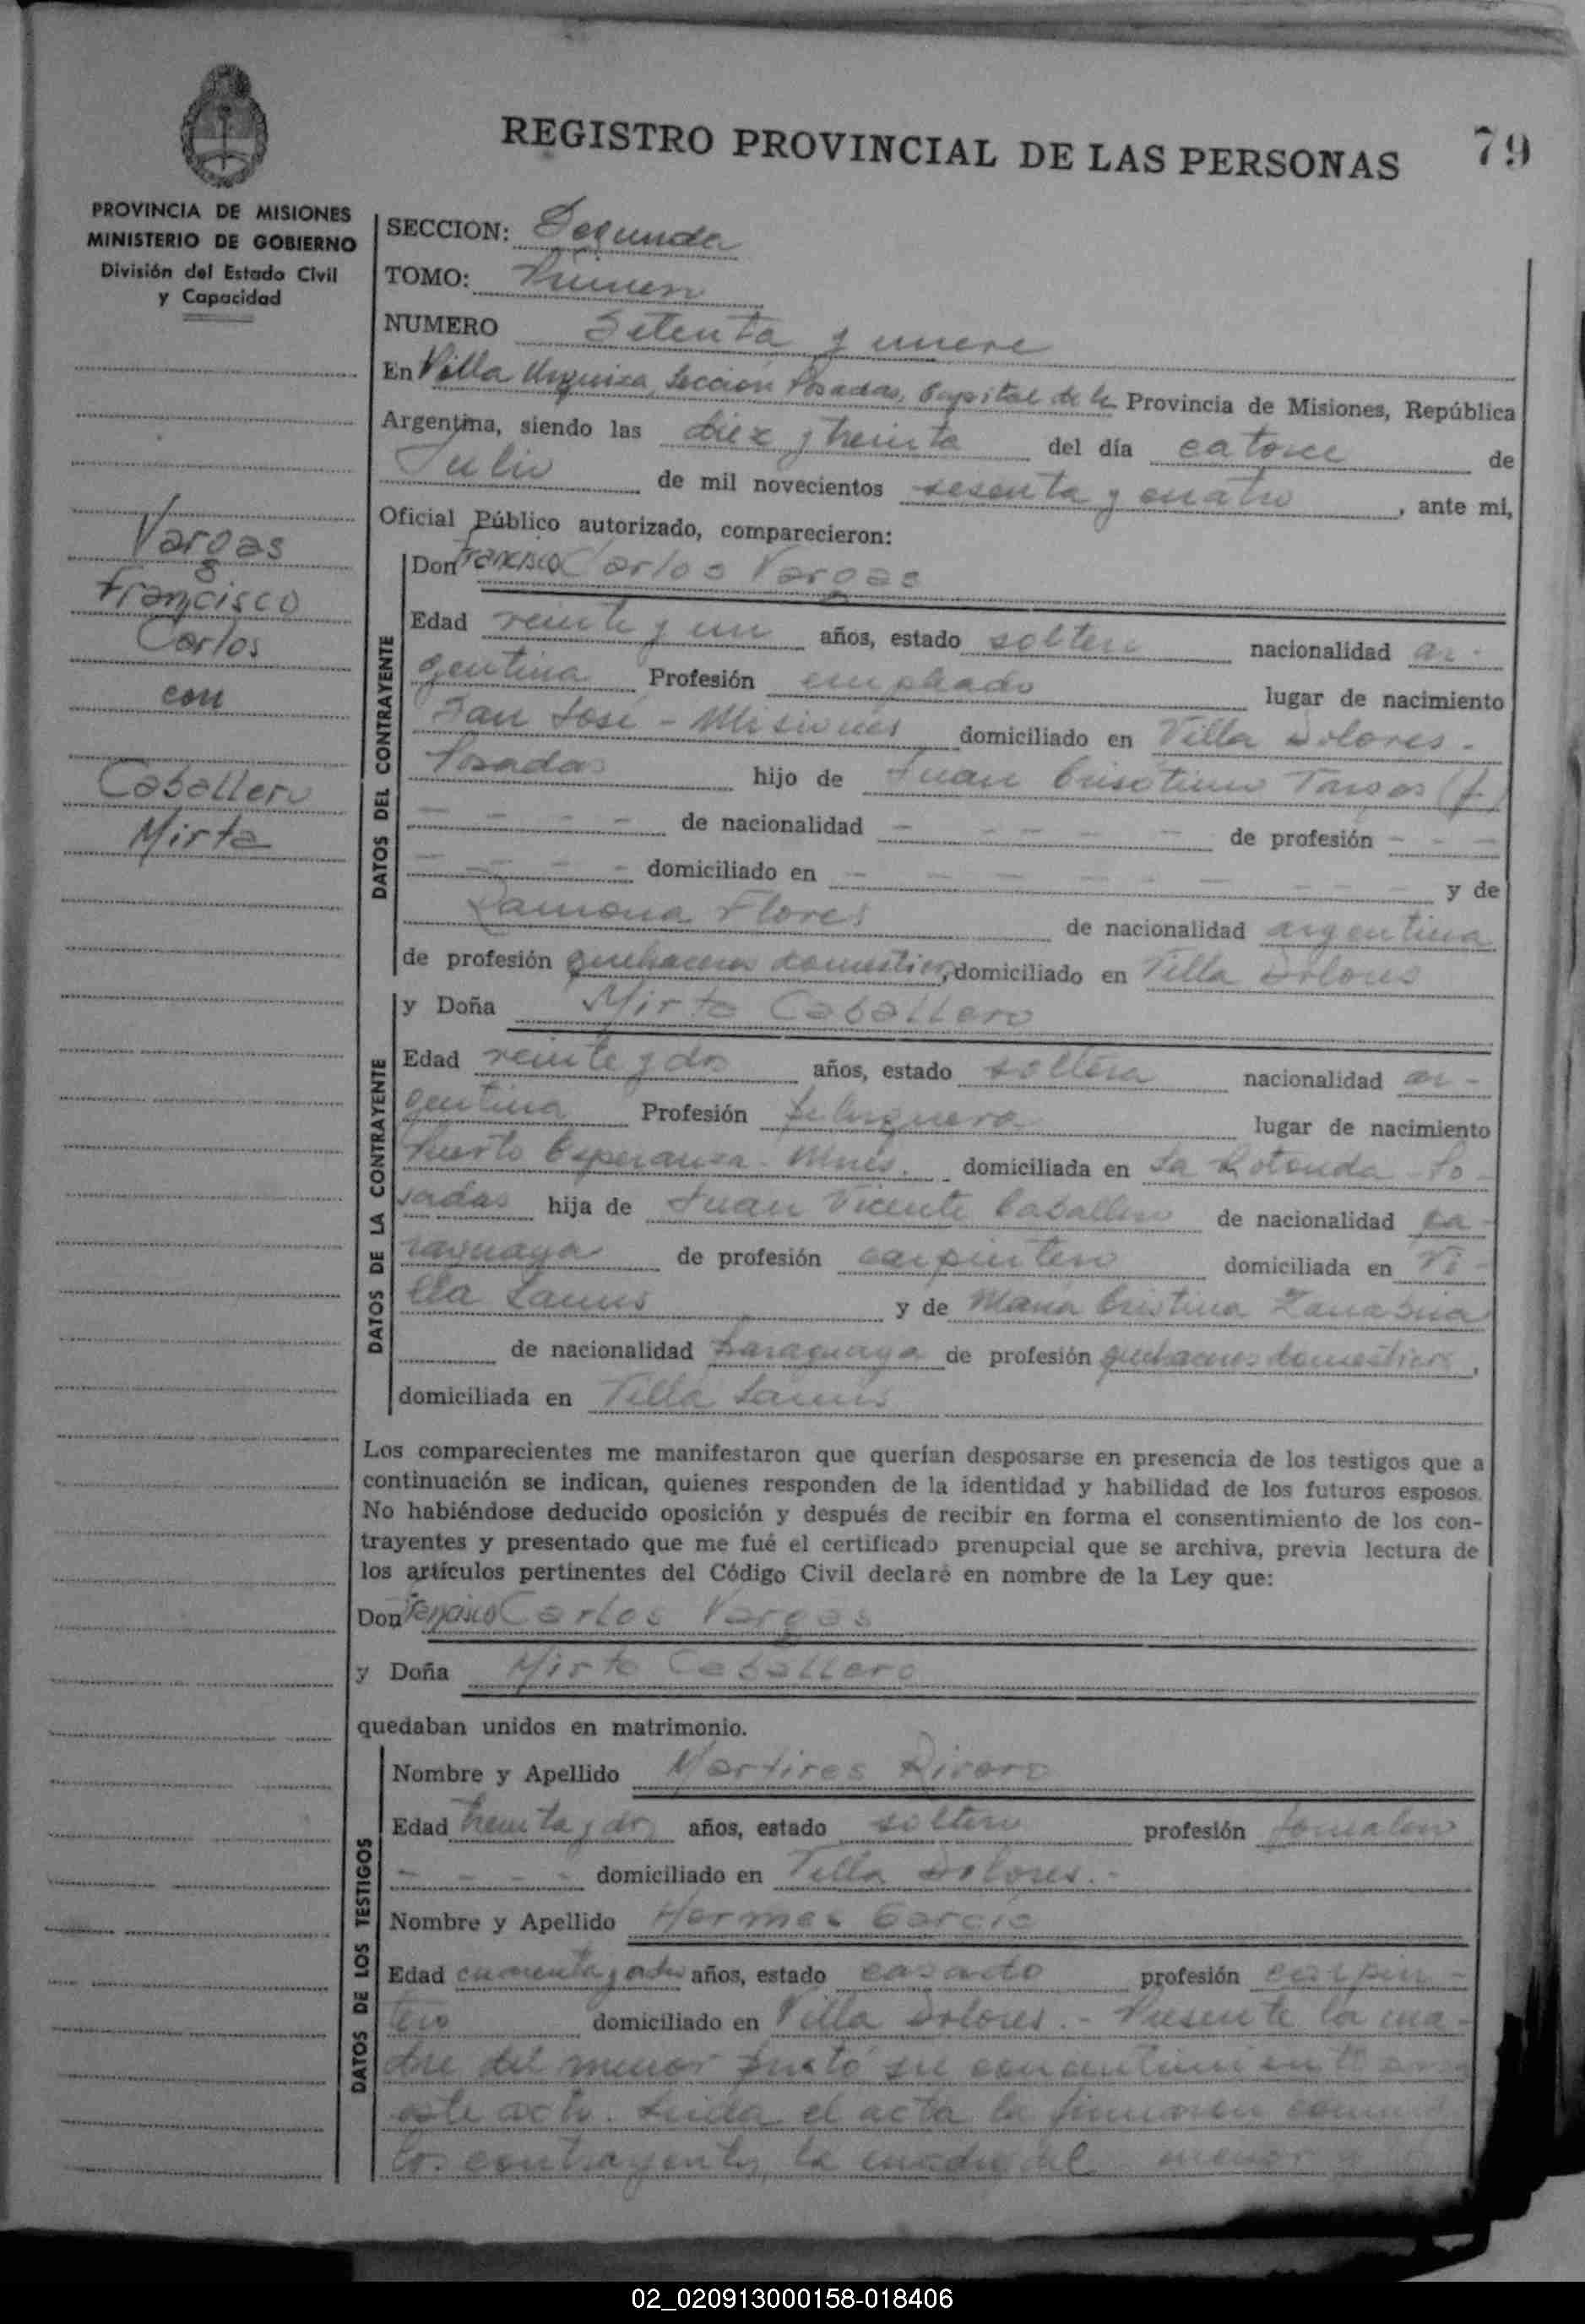 REGISTRO PROVINCIAL DE LAS PERSONAS
79
PROVINCIA DE MISIONES
MINISTERIO DE GOBIERNO
División del Estado Civil
y Capacidad
Vargas
Francisco
Carlos
con
Caballero
Mirta
SECCION: Segunda
TOMO: Primero
NUMERO Setenta y nueve
En Villa Urquiza, Sección Posadas, Capital de la Provincia de Misiones, República
Argentina, siendo las diez y treinta del día catorce de
Julio de mil novecientos sesenta y cuatro, ante mi,
Oficial Público autorizado, comparecieron:
DATOS DEL CONTRAYENTE
Don Francisco Carlos Vargas
Edad veinte y un años, estado soltero nacionalidad ar-
gentina Profesión empleado lugar de nacimiento
San José - Misiones domiciliado en Villa Dolores -
Posadas hijo de Juan (f)
- - - - de nacionalidad - - - - - de profesión - - -
- - - - domiciliado en - - - - - - - - y de
Ramona Flores de nacionalidad argentina
de profesión quehaceres domesticos, domiciliado en Villa Dolores
DATOS DE LA CONTRAYENTE
y Doña Mirta Caballero
Edad veinte y dos años, estado soltera nacionalidad ar-
gentina Profesión peluquera lugar de nacimiento
Puerto Esperanza - Mnes. domiciliada en La Rotonda - Po-
sadas hija de Juan Vicente Caballero de nacionalidad pa-
raguaya de profesión carpintero domiciliada en Vi-
lla Lanus y de María Cristina Zanabria
de nacionalidad paraguaya de profesión quehaceres domesticos,
domiciliada en Villa Lanus
Los comparecientes me manifestaron que querían desposarse en presencia de los testigos que a
continuación se indican, quienes responden de la identidad y habilidad de los futuros esposos.
No habiéndose deducido oposición y después de recibir en forma el consentimiento de los con-
trayentes y presentado que me fué el certificado prenupcial que se archiva, previa lectura de
los artículos pertinentes del Código Civil declaré en nombre de la Ley que:
Don Francisco Carlos Vargas
y Doña Mirta Caballero
quedaban unidos en matrimonio.
DATOS DE LOS TESTIGOS
Nombre y Apellido Martires Rivero
Edad treinta y dos años, estado soltero profesión jornalero
- - - - domiciliado en Villa Dolores.-
Nombre y Apellido Hermes Garcia
Edad cuarenta y ocho años, estado casado profesión carpin-
tero domiciliado en Villa Dolores.- Presente la ma-
dre del menor prestó su consentimiento para
este acto. Leída el acta la firmaron conmigo
los contrayentes, la madre del menor y
02_020913000158-018406